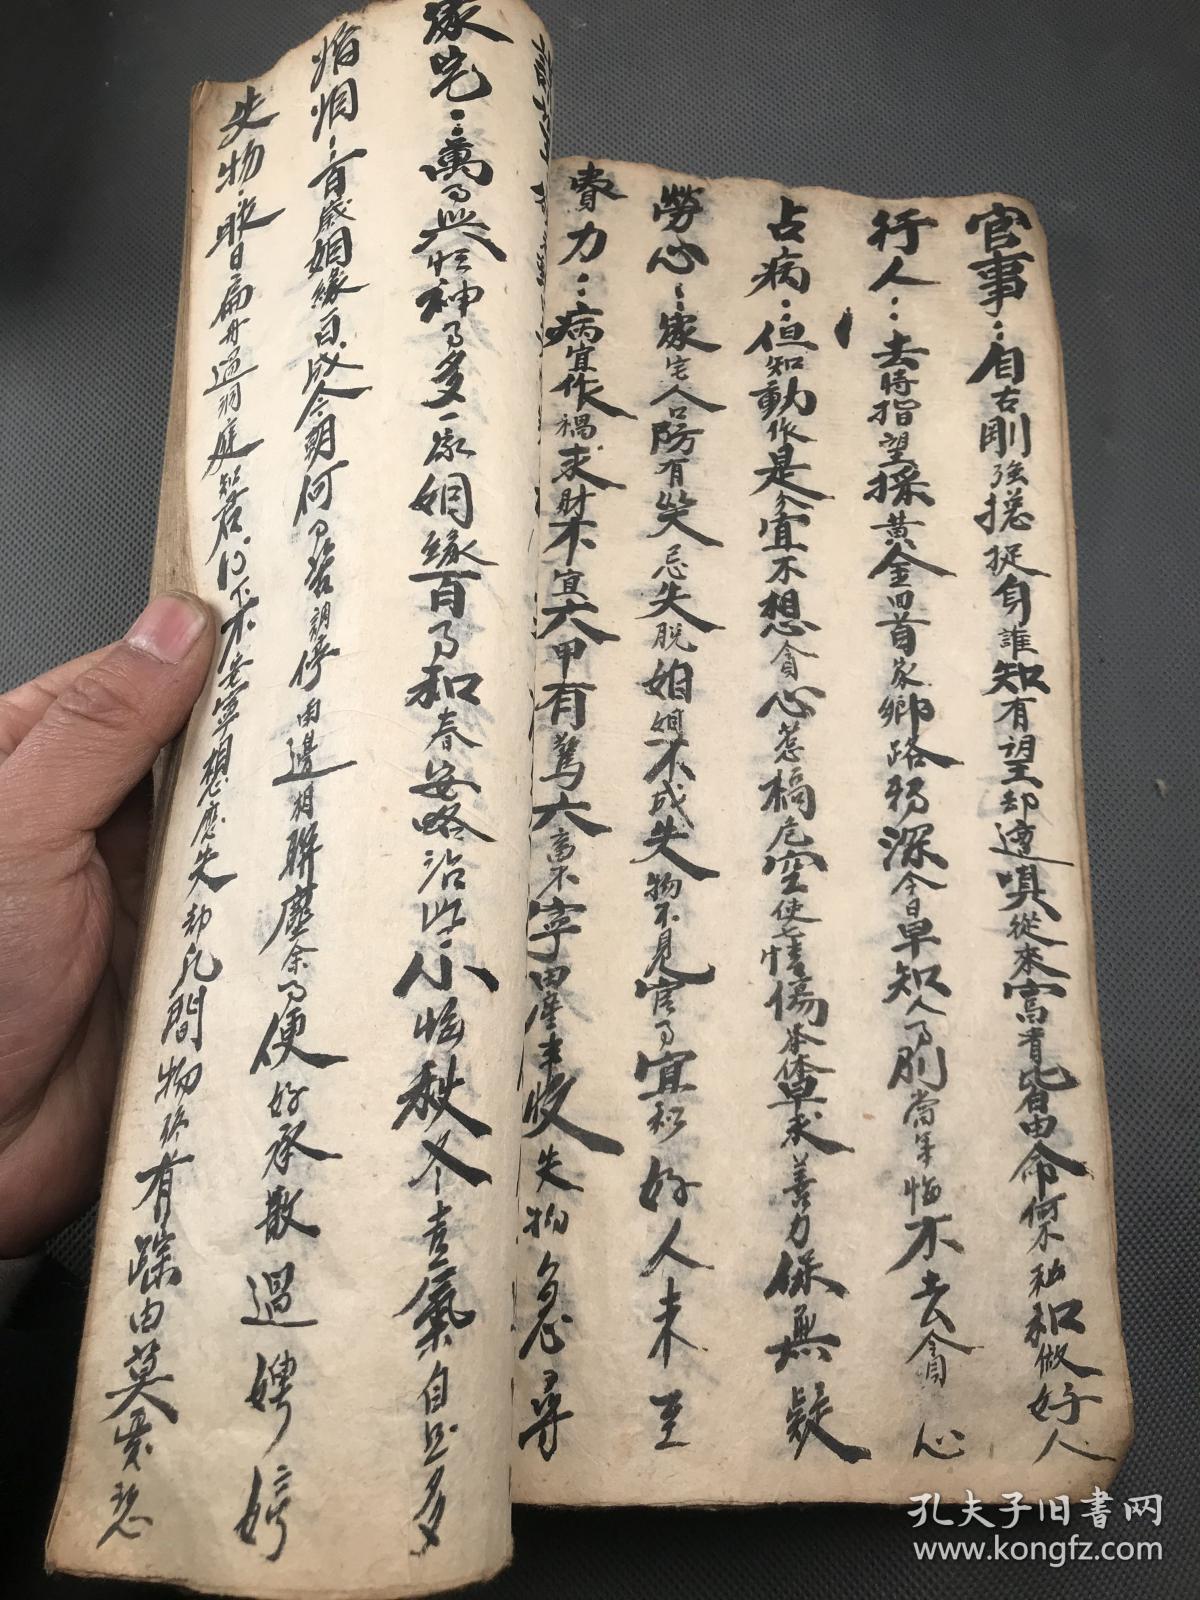 官事：自古剛強總捉身誰知有望却遭嗔從來富貴皆由命何不和做好人
行人：去時指望採黃金回首家鄉路轉深今日早知人事別當年悔不去貪心
占病：但知動作是宜不想貪心惹禍危空使七情傷茶体早求善力保無疑
勞心：家宅人口防有災忌失脫婚姻不成失物不見官事宜和好人未至
費力：病宜作禍求財不宜六甲有驚六畜不寧田產丰收失物急尋
家宅：萬事興旺神事多一家姻緣百事和春安略治小恙秋冬喜氣自然多
婚姻：百歲姻緣百歲今朝何事苦調停兩邊相聯塵余事便好承散過娉婷
失物：昨日扁舟過洞庭知君心下不安寧想應失却凡間物終有踪由莫怨
孔夫子旧书网
www.kongfz.com